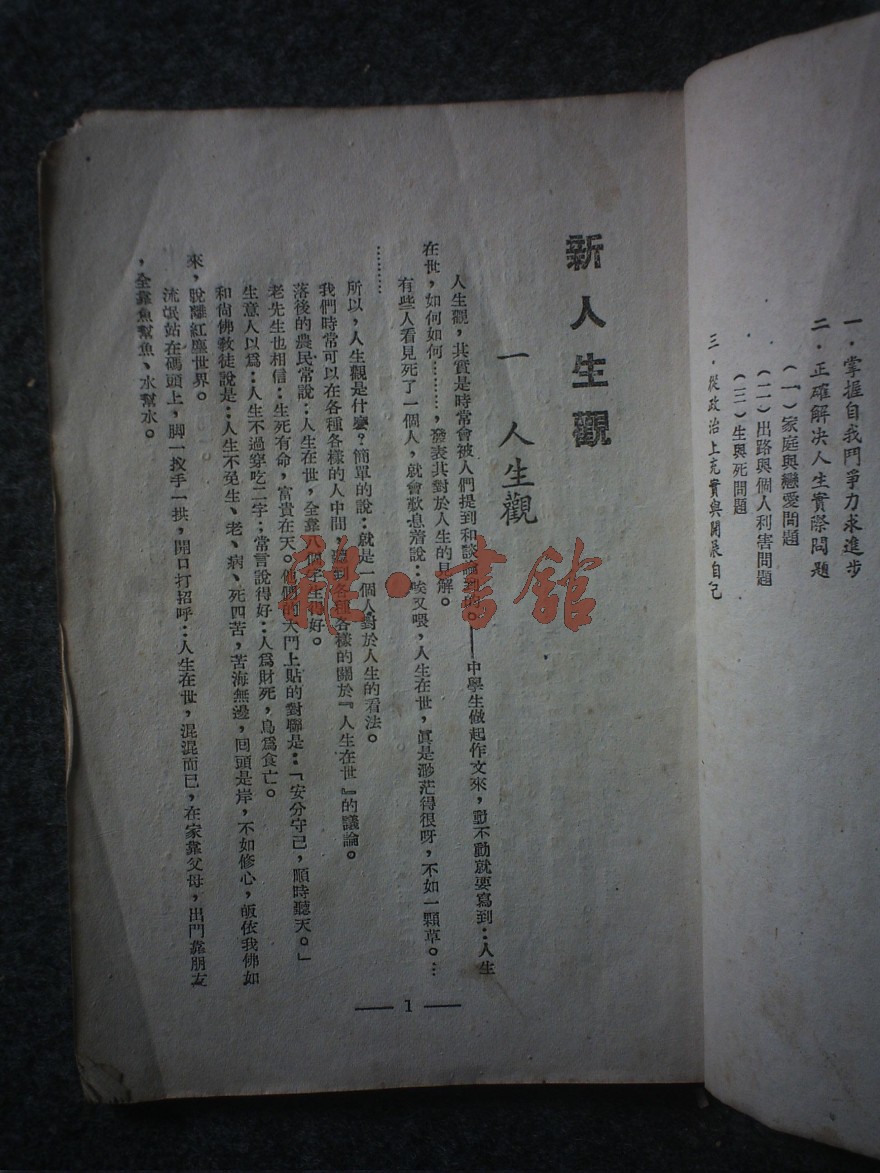 一．掌握自我鬥爭力求進步
二．正確解決人生實際問題
（一）家庭與戀愛問題
（二）出路與個人利害問題
（三）生與死問題
三．從政治上充實與開展自己
新人生觀
一 人生觀
人生觀，其實是時常會被人們提到和談論到的。——中學生做起作文來，動不動就要寫到：人生
在世，如何如何………，發表其對於人生的見解。
有些人看見死了一個人，就會歎息着說：唉又喂，人生在世，眞是渺茫得很呀，不如一顆草。…
………
所以，人生觀是什麼？簡單的說：就是一個人對於人生的看法。
我們時常可以在各種各樣的人中間，聽到各種各樣的關於『人生在世』的議論。
落後的農民常說：人生在世，全靠八個字生得好。
老先生也相信：生死有命，富貴在天。他們的大門上貼的對聯是：「安分守己，順時聽天。」
生意人以爲：人生不過穿吃二字；常言說得好：人爲財死，鳥爲食亡。
和尙佛敎徒說是：人生不免生、老、病、死四苦，苦海無邊，回頭是岸，不如修心，皈依我佛如
來，脫離紅塵世界。
流氓站在碼頭上，脚一投手一拱，開口打招呼：人生在世，混混而已，在家靠父母，出門靠朋友
，全靠魚幫魚、水幫水。
— 1 —
龍·書舘